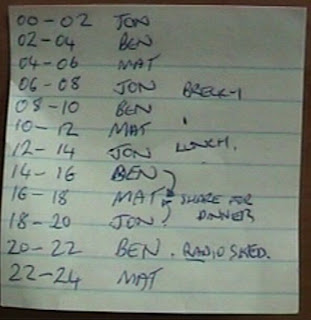 00-02 JON
02-04 BEN
04-06 MAT
06-08 JON BREKKY
08-10 BEN
10-12 MAT
12-14 JON LUNCH.
14-16 BEN
16-18 MAT SHARE FOR
18-20 JON. DINNER
20-22 BEN. RADIO SKED.
22-24 MAT